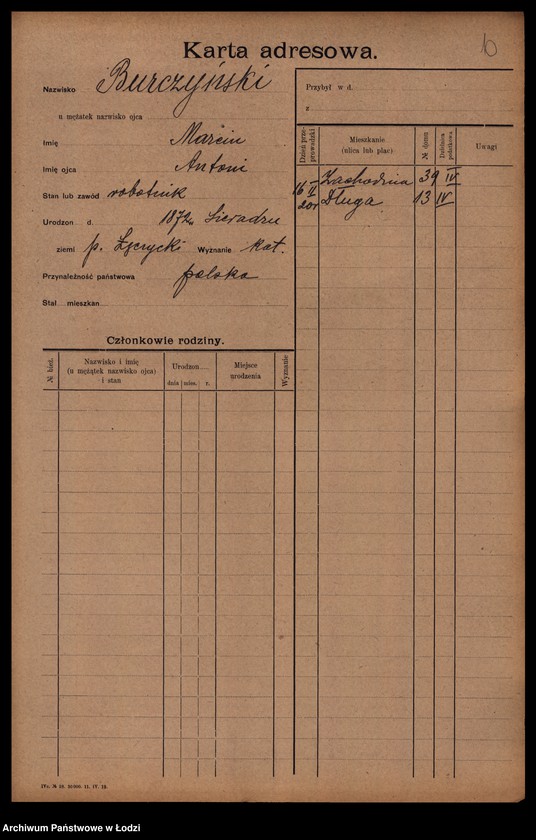 Karta adresowa.
10
Nazwisko Burczyński
u mężatek nazwisko ojca
Imię Marcin
Imię ojca Antoni
Stan lub zawód robotnik
Urodzon d. 1872 Sieradzu
ziemi p. Łęczycki Wyznanie kat.
Przynależność państwowa polska
Stał mieszkan
Przybył w d.
z
Dzień przeprowadzki
Mieszkanie
(ulica lub plac)
№ domu
Dzielnica podatkowa
Uwagi
16 Zachodnia 39 IV
20r Długa 13 IV
Członkowie rodziny.
№ bież.
Nazwisko i imię
(u mężątek nazwisko ojca)
i stan
Urodzon
dnia mies. r.
Miejsce
urodzenia
Wyznanie
Archiwum Państwowe w Łodzi